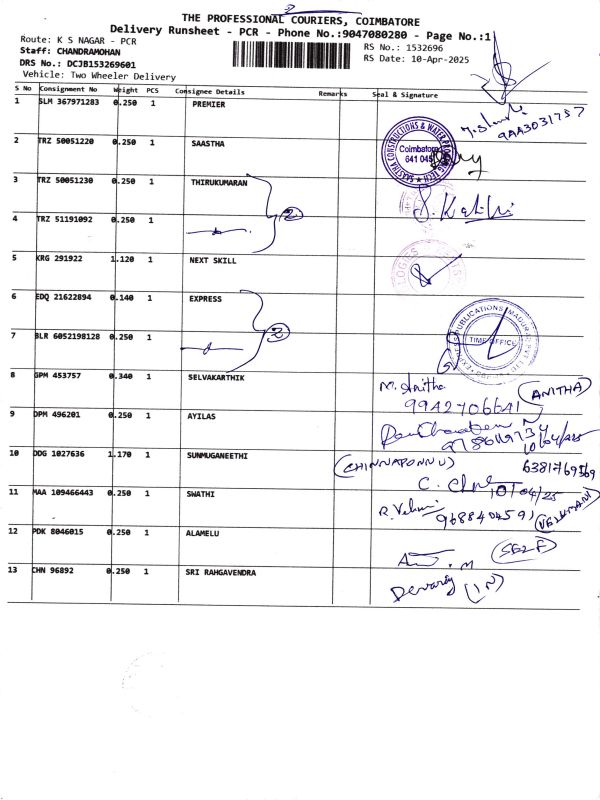 2
THE PROFESSIONAL COURIERS, COIMBATORE
Delivery Runsheet - PCR - Phone No.:9047080280 - Page No.:1
Route: K S NAGAR - PCR
Staff: CHANDRAMOHAN
DRS No.: DCJB153269601
Vehicle: Two Wheeler Delivery
RS No.: 1532696
RS Date: 10-Apr-2025
S No Consignment No Weight PCS Consignee Details Remarks Seal & Signature
1 SLM 367971283 0.250 1 PREMIER
9AA3031757
2 TRZ 50051220 0.250 1 SAASTHA
SAASTHA CONSTRUCTIONS & WATER PROOFING TECH
Coimbatore
641 045
3 TRZ 50051230 0.250 1 THIRUKUMARAN
2
4 TRZ 51191092 0.250 1
5 KRG 291922 1.120 1 NEXT SKILL
6 EDQ 21622894 0.140 1 EXPRESS
2
EXPRESS PUBLICATIONS MADURAI PVT LTD
TIME OFFICE
7 BLR 6052198128 0.250 1
8 GPM 453757 0.340 1 SELVAKARTHIK
M. Anitha (ANITHA)
9942706641
9 DPM 496201 0.250 1 AYILAS
9786119734
10/04/25
10 DDG 1027636 1.170 1 SUNMUGANEETHI
(CHINNAPONNU) 6381769569
10/04/25
11 MAA 109466443 0.250 1 SWATHI
9688404591 (VELUMANI)
12 PDK 8046015 0.250 1 ALAMELU
(SELF)
13 CHN 96892 0.250 1 SRI RAHGAVENDRA
(IN)